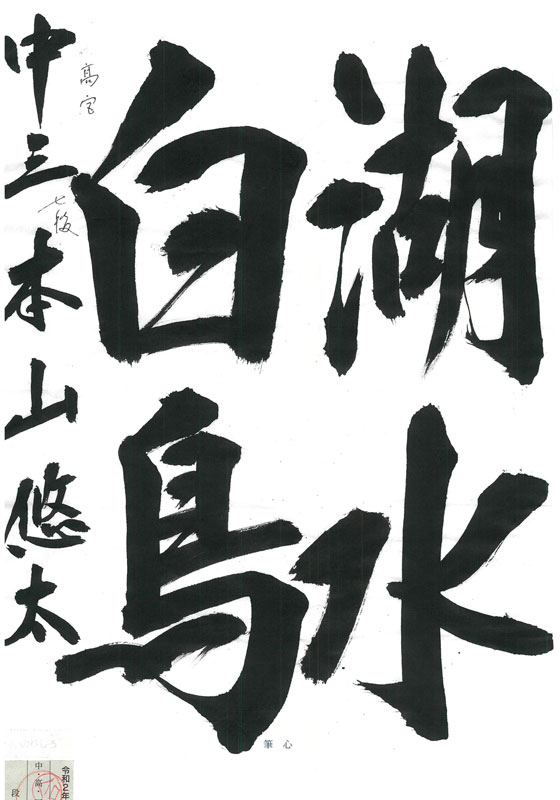 湖水
白鳥
高宮
七段
中三 本山悠太
心筆
のりしろ
令和2年
中・高・
段